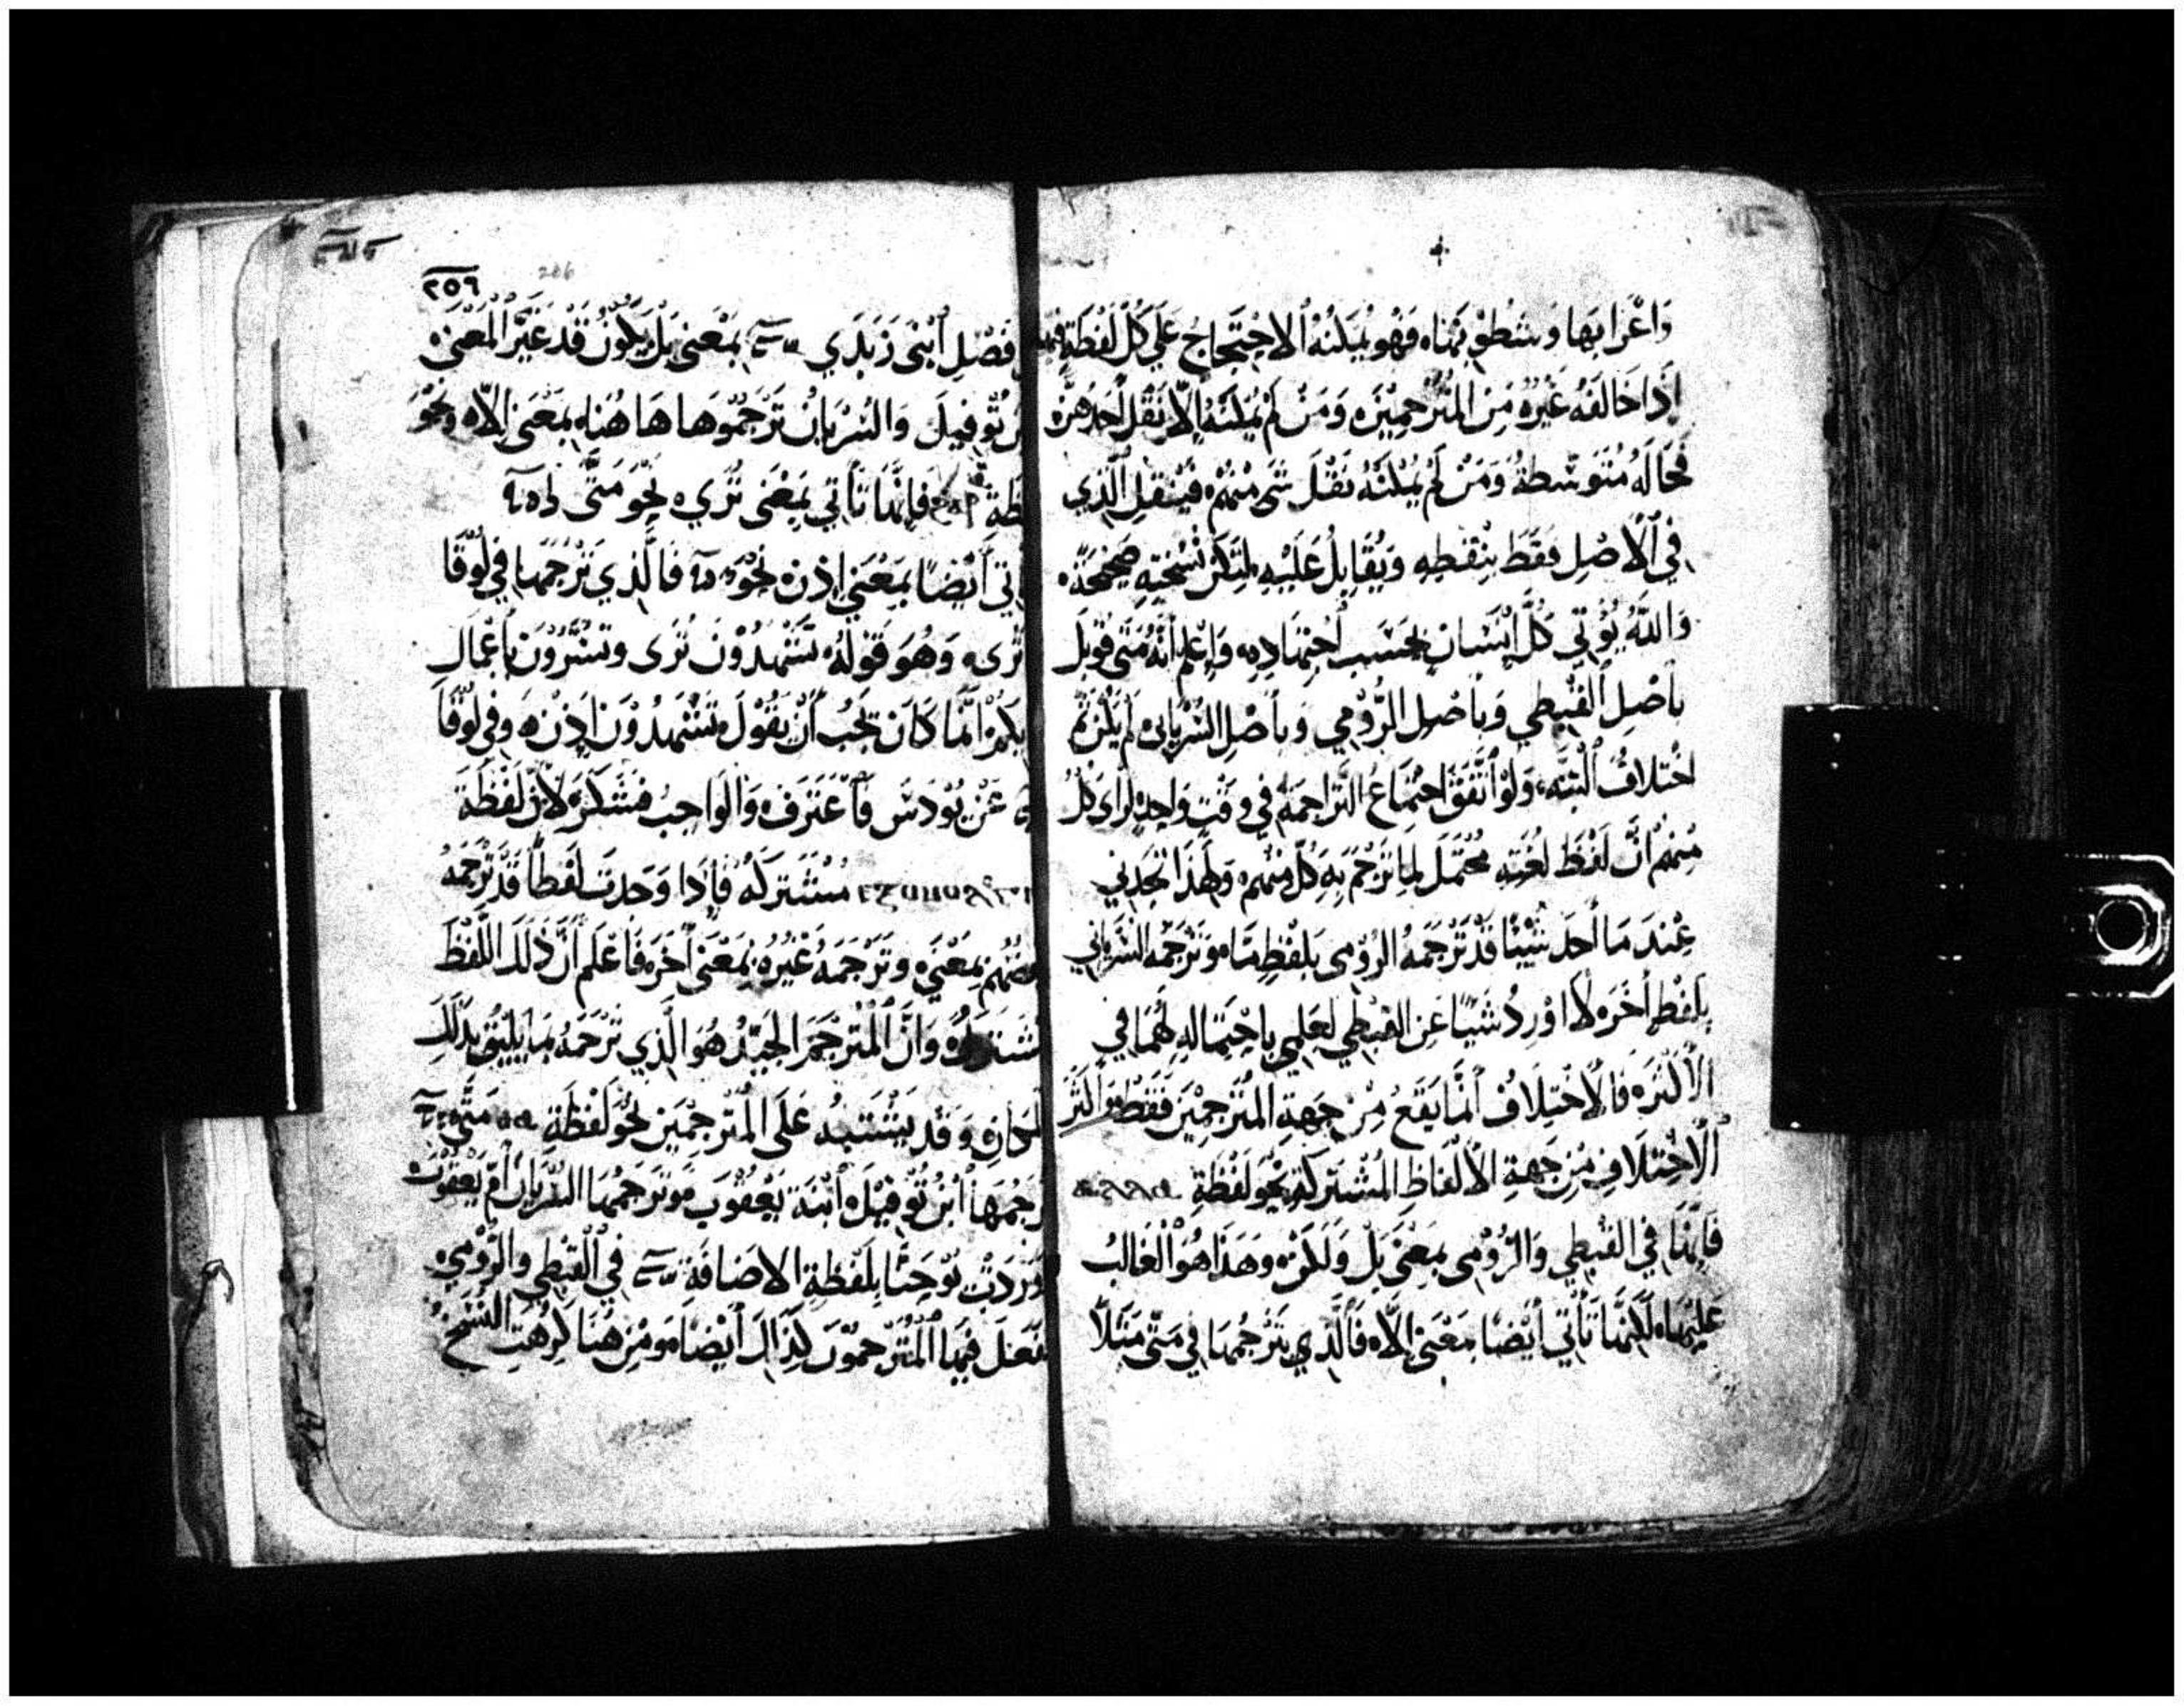 وَاعْرَابِهَا وَسُطُوْبِهَاه فَهُو يُمَكنُهُ الاحْتِجَاج عَلَي كُل لَفْظَةٍ
اِذَا خَالَفَهُ غَيْرُهُ مِنَ المُتَرجِمِيْنَ ه وَمَنْ لَمْ يُمكنَهُ اِلّا نَقْل اَحَدهمْ ه
فَحَالَهُ مُتَوَسّطَةُ وَمَنْ لَمْ يُمْكنَهُ نَقْلَ شَي مِنْهُمْ ه فَيَنقل الَّذِي
فِي الْاَصْلِ فَقَطَ بِنقْطِهِ وَيُقَابِلُ عَلَيْهِ لِتَكُنْ نُسْخَتِهِ صَحِيْحَةً ه
وَاللهُ يُوْتِي كُلَّ اِنْسَانٍ بِحَسَب اُجتِهَادِهِ ه وَاِعْلَم اَنَّهُ مَتَى قُوْبِلَ
بِاَصْلِ القِبْطِي وَبِاَصْلِ الرُّوْمِي وَبِاَصْلِ السُّرْيَانِي لَم يَكُن ثَم
اخْتلَافُ البَتَّه ه وَلَوْ اَتَّفَقَ اجْتِمَاعُ التَّرَاجِمَهْ فِي وَقت وَاحِدٍ لَرَاي كُلُ
مِنهُمْ اَنَّ لَفْظَ لغَتِهِ مُحْتَمَل لِمَا تَرْجَمَ بِهِ كُل مِنْهُم ه وَلِهَذَا تَجَدنِي
عِنْدَ مَا اَجِد شَيْئًا قَدْ تَرْجَمَهُ الرُوْمِي بِلَفْظٍ مَا ه وَتَرْجَمَهُ السُّرْيَانِي
بِلَفْظٍ اَخَرَ ه لَا اُوْرِدُ شَيْئًا عَنِ القِبْطِي لِعِلْمِي بِاحْتِمَالِهِ لَهُمَا فِي
الْاَكْثَرِ ه فَالْاخْتِلَافُ اَنَّمَا يَقَعُ مِنْ جِهَةِ المُتَرجِمِيْنَ فَقَطْ ه وَاَكْثَرُ
الْاخْتِلَافِ مِنْ جِهَةِ الْاَلْفَاظِ المُشْتَرَكَةِ نَحْو لَفْظَةِ
فَاِنّهَا فِي القِبْطِي وَالرُّوْمِي بِمَعْنَي بَلْ وَلَكِنْ ه وَهَذَا هُوَ الغَالِبُ
عَلَيْهَا ه لَكِنّهَا تَأْتِي اَيْضًا بِمَعْنَي اِلّا ه فَالَّذِي تَرْجَمَهَا فِي مَتَّى مَثَلًا
٢٥٩
266
فَصْلِ اُبْنَى زَبَدِي بِمَعْنَى بَلْ يَكُوْنُ قَدْ غَيَّرَ المَعْنَى ه
تُوْفِيْلَ وَالسُرْيَانُ تَرْجَمُوْهَا هَا هُنَا ه بِمَعْنَي اِلّا ه وَنَحْوَ
فَاِنَّهَا تَأْتِي بِمَعْنَى تُرَي ه نَحْوِ مَتَّى
اَيْضًا بِمَعْنَي اِذن ه نَحْوَ فَالَّذِي تَرْجَمَهَا فِي لُوْقَا
تُرَى ه وَهُوَ قَوْلَهُ ه تَشْهَدُوْنَ تُرَى وَتُسَرُّوْنَ بِاَعْمَالِ
اِنَّمَا كَانَ يَجِبُ اَنْ يَقُوْلَ ه تَشْهَدُوْنَ اِذن ه وَفِي لُوْقَا
عَنْ يُوْدَس فَاَعْتَرَفَ ه وَالْوَاجِب فَشَكَرَ ه لْاَنّ لَفْظَةَ
مُشْتَرَكَه فَاِذَا وَجَدتَ لَفْظًا قَدْ تَرْجَمَهُ
بِمَعْنَي ه وَتَرْجَمَهُ غَيْرُهُ بِمَعْنَي اَخَرَ ه فَاعْلَم اَنَّ ذَلِكَ اللَّفْظَ
وَاَنَّ المُتَرْجِمَ الجَيّدُ هُوَ الَّذِي تَرْجَمَهُ بِمَا يَلِيْقُ بِذَلِكَ
المَكَانِ ه وَقَد يَشْتَبِهُ عَلَى المُتَرْجِمِيْنَ نَحْوَ لَفْظَةِ
اُبْنُ تُوْفِيْلَ ه اُبْنَة يَعْقُوْبَ ه وَتَرْجَمَهَا السُّرْيَانَ اُمّ يَعْقُوْبَ
يُوْحَنَّا بِلَفْظَةِ الاضَافَة فِي القِبْطِي وَالرُّوْمِي ه
فِيْهَا المُتَرْجِمُوْنَ كَذَالِكَ اَيْضًا ه وَمِنْ هُنَا كَرِهْتِ النُّسَخ